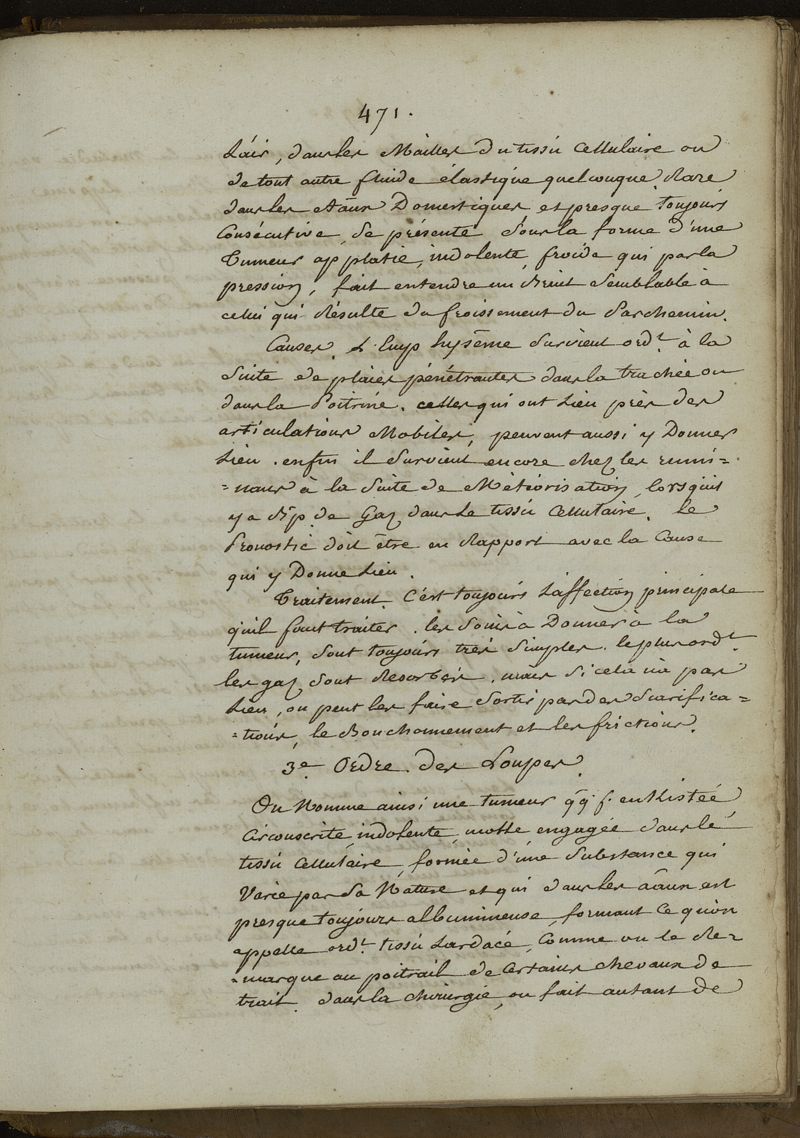 471.
L'air, dans les Mailles du tissû Cellulaire ou
de tout autre fluide élastique quelconque. Rare
dans les Aãux Domestiques et presque toujours
Consécutive, se présente sous la forme d'une
tumeur applatie, indolente, froide qui par la
pression, fait entendre un Bruit semblable à
celui qui Résulte du froissement du Parchemin.
Causes. L'emphysême survient ordt. à la
suite de plaies pénétrantes dans la trachée ou
dans la Poitrine. celles qui ont Lieu près des
articulations Mobiles, peuvent aussi y Donner
Lieu. enfin il survient encore chez les rumi=
=nans à la suite de Météorisation, lorsqu'il
y a de Gaz dans le tissû Cellulaire. le
Pronostic doit être en Rapport avec la Cause
qui y Donne Lieu.
Traitement. C'est toujours L'affection principale
qu'il faut traiter. les soins à Donner à la
tumeur, sont toujours très simples. le plus ordt.
les gaz sont Résorbés, mais si cela n'a pas
Lieu, on peut les faire sortir par des scarifica=
=tions, le Bouchonnement et les frictions.
3e. Ordre. des Loupes.
On Nomme ainsi une tumeur qqf. enkistée,
Circonscrite, indolente, molle engagée dans le
tissû Cellulaire, formée d'une substance qui
Varie par sa Nature et qui dans les aãux est
presque toujours albumineuse, formant ce qu'on
appelle ordt. tissû Lardacé, Comme on le Re=
=marque au poitrail de Certains chevaux de
trait. dans la chirurgie, on fait autant de